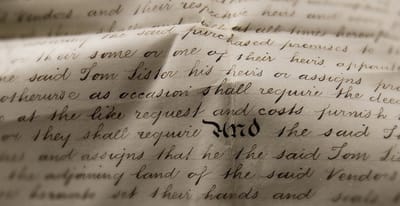 Vendors and their respective heirs and
the said purchased premises to
their some or one of their heirs
said Tom Lister his heirs or assigns
otherwise as occasion shall require the
at the like request and costs furnish
they shall require And the said T
and assigns that he the said Tom Lis
the adjoining land of the said Vendors
set their hands and seals